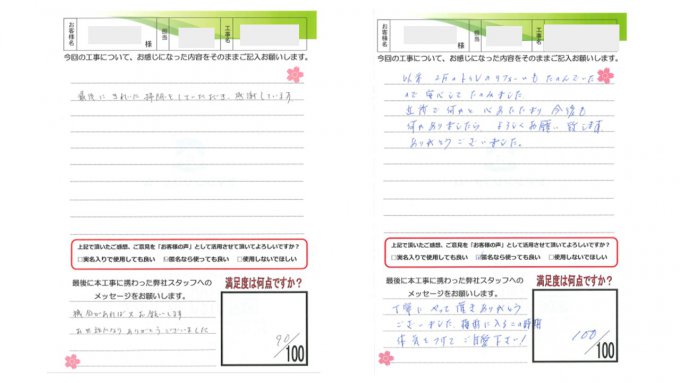 お客様名
様
担当
工事名
今回の工事について、お感じになった内容をそのままご記入お願いします。
最後にきれいに掃除をしていただき、感謝しています
上記で頂いたご感想、ご意見を「お客様の声」として活用させて頂いてよろしいですか?
□実名入りで使用しても良い ☑匿名なら使っても良い □使用しないでほしい
最後に本工事に携わった弊社スタッフへの
メッセージをお願いします。
機会があれば又お願いします
お世話になりありがとうございました
満足度は何点ですか?
90
/100
お客様名
様
担当
工事名
今回の工事について、お感じになった内容をそのままご記入お願いします。
以前 2Fのトイレのリフォームもたのんでいた
ので安心してたのみました。
近所で何かと心強く 今後も
何かありましたら よろしくお願い致します
ありがとうございました。
上記で頂いたご感想、ご意見を「お客様の声」として活用させて頂いてよろしいですか?
□実名入りで使用しても良い ☑匿名なら使っても良い □使用しないでほしい
最後に本工事に携わった弊社スタッフへの
メッセージをお願いします。
丁寧にやって頂きありがとう
ございました 梅雨に入るこの時期
体気をつけてご自愛下さい!
満足度は何点ですか?
100
/100